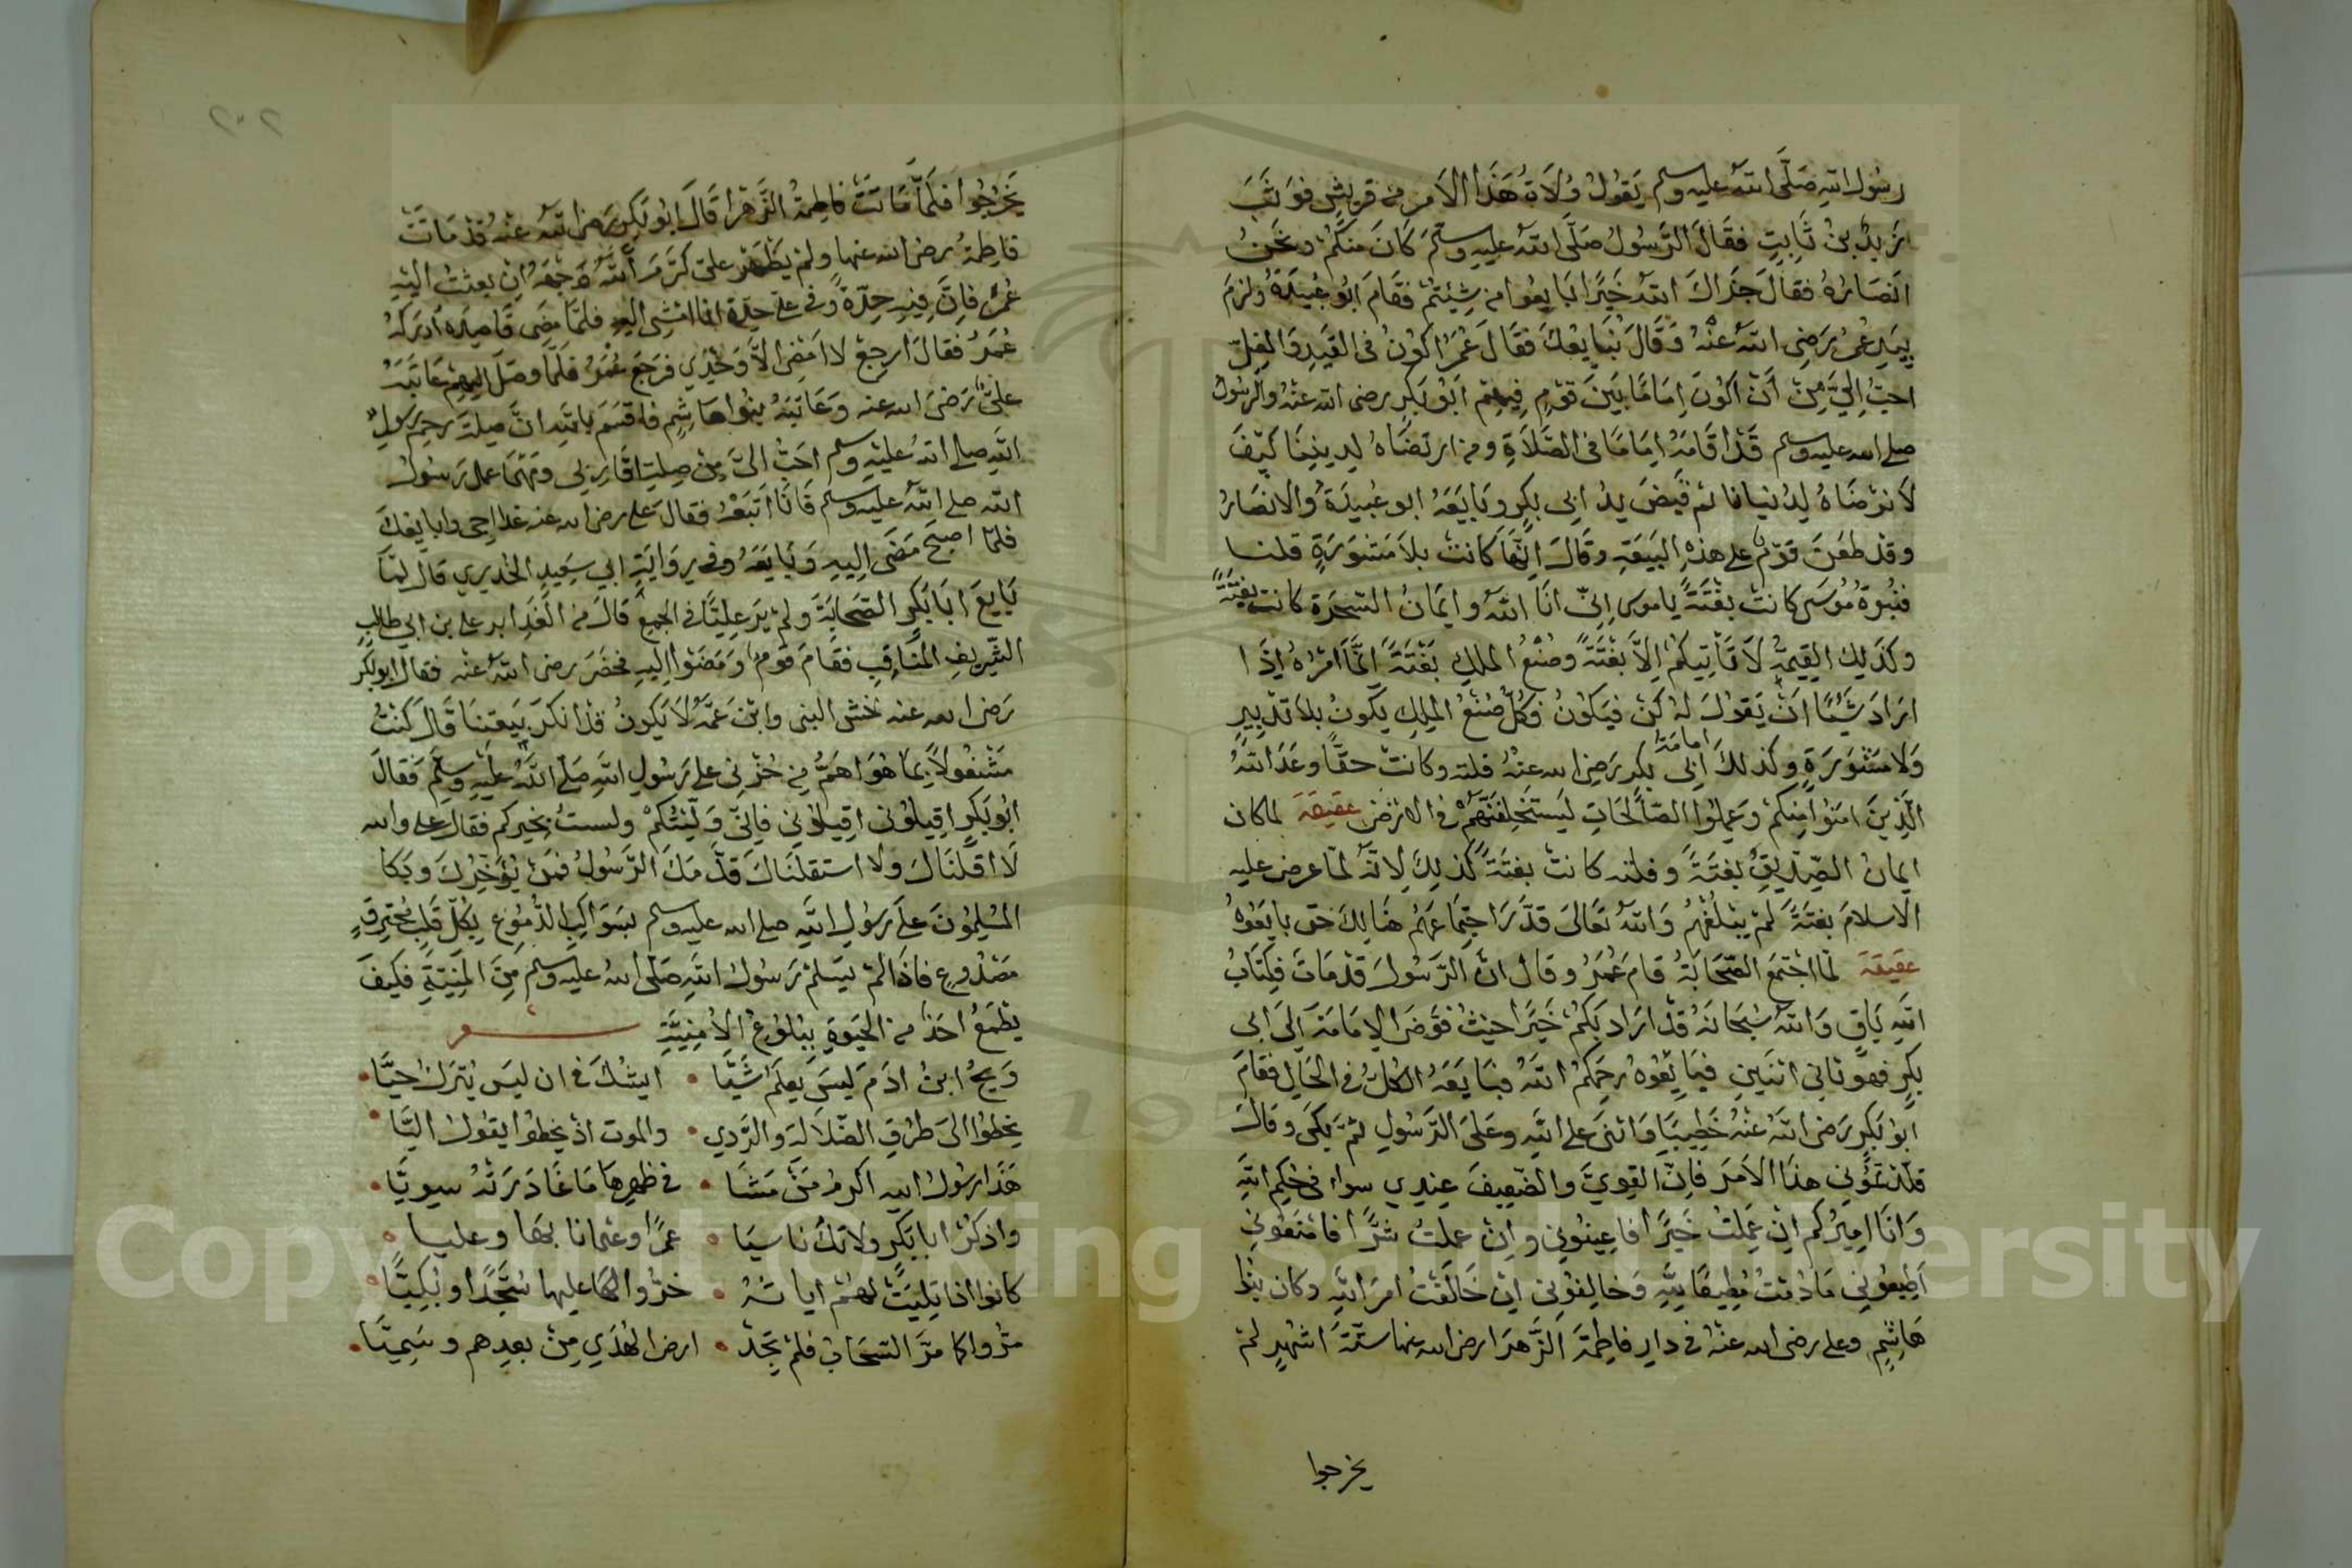 رسول الله صلى الله عليه وسلم يقول ولاة هذا الامر من قريش فوثب
زيد بن ثابت فقال الرسول صلى الله عليه وسلم كان منكم ونحن
انصاره فقال جزاك الله خيرا بايعوا من شيئتم فقام ابو عبيدة ولزم
بيد عمر رضي الله عنه وقال نبايعك فقال عمر اكون في القيد والغل
احب الي من ان اكون اماما بين قوم فيهم ابو بكر رضي الله عنه والرسول
صلى الله عليه وسلم قد اقامه اماما في الصلاة ومن ارتضاه لديننا كيف
لا نرضاه لدنيانا ثم قبض يد ابي بكر وبايعه ابو عبيدة والانصار
وقد طعن قوم على هذه البيعة وقال انها كانت بلا مشورة قلنا
فنبوة موسى كانت بغتة ياموسى اني انا الله وايمان السحرة كانت بغتة
وكذلك القيمة لا تأتيكم الا بغتة وصنع الملك بغتة انما امره اذا
اراد شيئا ان يقول له كن فيكون وكل صنع الملك يكون بلا تدبير
ولا مشورة وكذلك امامة ابي بكر رضي الله عنه فلته وكانت حقا وعد الله
الذين امنوا منكم وعملوا الصالحات ليستخلفنهم في الارض عقيقة لما كان
ايمان الصديق بغتة وفلته كانت بغتة كذلك لانه لما عرض عليه
الاسلام بغتة لم يتلعثم والله تعالى قدر اجتماعهم هنالك حتى بايعوه
عقيقة لما اجتمع الصحابة قام عمر وقال ان الرسول قد مات فكتاب
الله باق والله سبحانه قد اراد بكم خيرا حيث فوض الامامة الى ابي
بكر فهو ثاني اثنين فبايعوه رحمكم الله فبايعه الكل في الحال فقام
ابو بكر رضي الله عنه خطيبا واثنى على الله وعلى الرسول ثم بكى وقال
قلدتموني هذا الامر فان القوي والضعيف عندي سواء في حكم الله
وانا اميركم ان عملت خيرا فاعينوني وان عملت شرا فامنعوني
اطيعوني ما دمت مطيعا لله وخالفوني ان خالفت امر الله وكان بنوا
هاشم وعلى رضي الله عنه في دار فاطمة الزهرا رضي الله عنها ستة اشهر لم
يخرجوا
٢٠٢
يخرجوا فلما ماتت فاطمة الزهرا قال ابو بكر رضي الله عنه قد ماتت
فاطمة رضي الله عنها ولم يظهر علي كرم الله وجهه ان بعثت اليه
عمر فان فيه حدة وفي علي حدة انا امشي اليه فلما مضى قاصده ادركه
عمر فقال ارجع لا امضي الا وحدي فرجع عمر فلما وصل اليهم عاتبه
علي رضي الله عنه وعاتبه بنوا هاشم فاقسم بالله ان صلة رحم رسول
الله صلى الله عليه وسلم احب الي من صلة اقاربي ومهما عمل رسول
الله صلى الله عليه وسلم فانا اتبعه فقال على رضي الله عنه غدا اجي وابايعك
فلما اصبح مضى اليه وبايعه وفي رواية ابي سعيد الخدري قال لما
بايع ابا بكر الصحابة ولم ير عليا في الجمع قال من الغد اين على بن ابي طالب
الشريف المناقب فقام قوم ومضوا اليه فحضر رضي الله عنه فقال ابو بكر
رضي الله عنه ختن النبي وابن عمه لا يكون قد انكر بيعتنا قال كنت
مشغولا بما هو اهم من حزني على رسول الله صلى الله عليه وسلم فقال
ابو بكر اقيلوني اقيلوني فاني وليتكم ولست بخيركم فقال على والله
لا اقلناك ولا استقلناك قدمك الرسول فمن يؤخرك وبكا
المسلمون على رسول الله صلى الله عليه وسلم بسواكب الدموع بكل قلب محترق
مصدوع فاذا لم يسلم رسول الله صلى الله عليه وسلم من المنية فكيف
يطمع احد من الحيوة ببلوغ الامنية شعر
ويح ابن ادم ليس يعلم شيا • ايشك في ان ليس يترك حيا •
يخطوا الى طرق الضلالة والردي • والموت اذ يخطوا يقول اليا •
هذا رسول الله اكرم من مشا • في ظهرها ما غادرته سويا •
واذكر ابا بكر ولا تك ناسيا • عمرا وعثمانا بها وعليا •
كانوا اذا تليت لهم اياته • خروا لها عليها سجدا وبكيا •
مروا كما مر السحاب فلم تجد • ارض الهدي من بعدهم وسميا •
Copyright © King Saud University